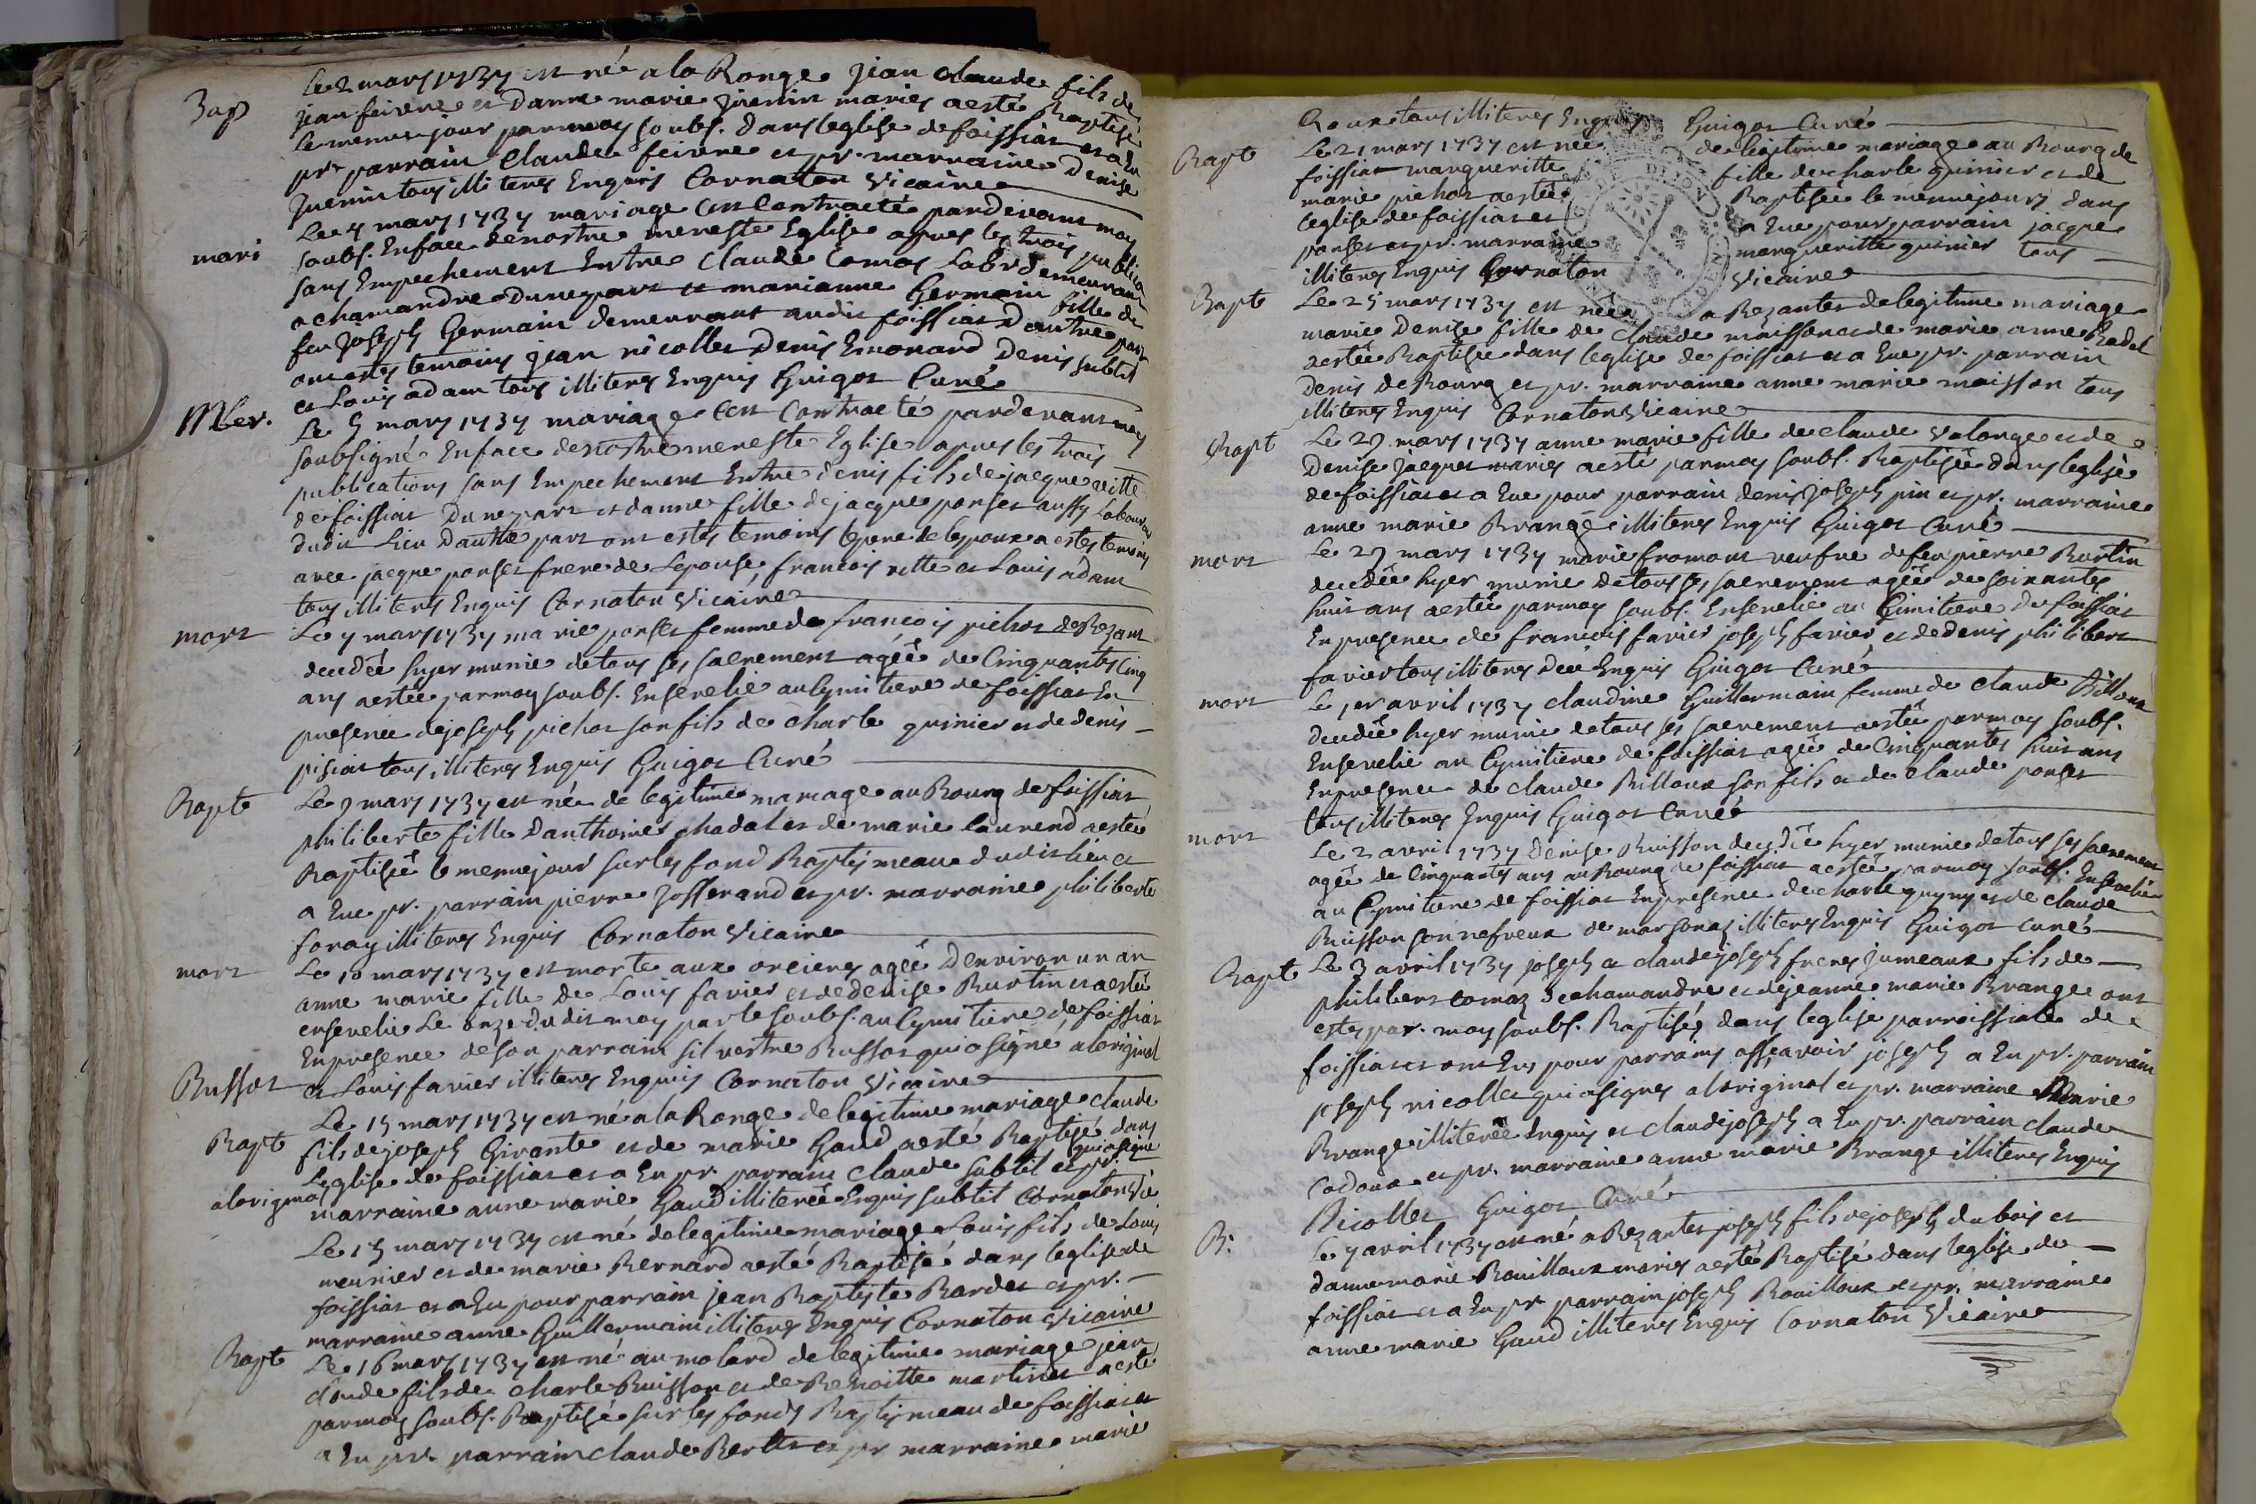 Bap
Le 2 mars 1737 est né a la Ronge jean claude fils de
jean feivre et danne marie juenin mariés a esté Baptisé
le meme jour par moy soubs. dans leglise de foissiat et a Eu
pr parrain Claude feivre et pr. marraine Denise
juenin tous illiterés Enquis Cornaton Vicaire
mari
Le 4 mars 1737 mariage Est Contracté pardevant moy
soubs. En face de nostre mere ste Eglise apres les trois publica
sans Empechement Entre Claude Comas Labr demeurant
a chamandre dune part et marianne Germain fille de
feu joseph Germain demeurant audit foissiat dautre part
ont estés temoins jean nicollet Denis Emonard Denis subtil
et Louis adam tous illiterés Enquis Guigot Curé
Le 5 mars 1737 mariage Est Contracté pardevant moy
soubsigné En face de nostre mere ste Eglise apres les trois
publications sans Empechement Entre denis fils de jacque vitte
de foissiat Dune part et danne fille de jacque ponset aussy Laboureur
dudit Lieu Dautre part ont estés temoins le pere de lepoux a estés temoins
avec jacque ponset frere de Lepouse francois vitte et Louis adam
tous illiterés Enquis Cornaton Vicaire
mort
Le 7 mars 1737 marie ponset femme de francois pichot de Bezant
decedée hyer munie de tous ses sacrement agée de Cinquantes Cinq
ans a estée par moy soubs. Ensevelie au Cymitiere de foissiat En
presence de joseph pichot son fils de charle quinier et de denis
pisiat tous illiterés Enquis Guigot Curé
Bapt
Le 9 mars 1737 est née de legitime mariage au Bourg de foissiat
philiberte fille Danthoine chadal et de marie laurend a estée
Baptisée le meme jour sur les fond Baptismeaux dudit lieu et
a Eue pr. parrain pierre josserand et pr. marraine philiberte
foray illiterés Enquis Cornaton Vicaire
mort
Le 10 mars 1737 est morte aux orciens agée Denviron un an
anne marie fille de Louis favier et de denise Burtin et a esté
ensevelie Le onze dudit moy par le soubs. au Cymitiere de foissiat
En presence de son parrain silvestre Bussot qui a signé a loriginal
Bussot
et Louis favier illiterés Enquis Cornaton Vicaire
Bapt
Le 15 mars 1737 est né a la Ronge de legitime mariage claude
fils de joseph Girante et de marie Gaud a esté Baptisé dans
Leglise de foissiat et a Eu pr. parrain Claude subtil qui a signé et pr.
a loriginal
marraine anne marie Gaud illiterée Enquis subtil Cornaton Vic
Le 15 mars 1737 est né de legitime mariage Louis fils de Louis
meunier et de marie Bernard a esté Baptisé dans leglise de
foissiat et a Eu pour parrain jean Baptiste Bardet et pr.
marraine anne Guillermain illiterés Enquis Cornaton Vicaire
Bapt
Le 16 mars 1737 est né au molard de legitime mariage jean
claude fils de charle Buisson et de Benoitte martinet a esté
par moy soubs. Baptisé sur les fonds Baptismeau de foissiat et
a Eu pr. parrain claude Berthet et pr marraine marie
Roux tous illiterés Enquis Guigot Curé
Bapt
Le 21 mars 1737 est née de legitime mariage au Bourg de
foissiat margueritte fille de charle quinier et de
marie pichot a estée Baptisée le meme jour dans
leglise de foissiat et a Eue pour parrain jacque
ponset et pr. marraine margueritte quinier tous
illiterés Enquis Cornaton Vicaire
Bapt
Le 25 mars 1737 est née a Bezantes de legitime mariage
marie Denise fille de Claude maisson et de marie anne Badel
a estée Baptisée dans leglise de foissiat et a Eue pr. parrain
Denis de Bourg et pr. marraine anne marie maisson tous
illiterés Enquis Cornaton Vicaire
Bapt
Le 27 mars 1737 anne marie fille de claude Valonge et de
Denise jacquet mariés a esté par moy soubs. Baptisée dans leglise
de foissiat et a Eue pour parrain denis joseph pin et pr. marraine
anne marie Brange illiterés Enquis Guigot Curé
mort
Le 27 mars 1737 marie fromont veufve de feu pierre Burtin
decedée hyer munie de tous ses sacrement agée de soixantes
huit ans a estée par moy soubs. Ensevelie au Cimitiere de foissiat
En presence de francois favier joseph favier et de denis philibert
favier tous illiterés de ce Enquis Guigot Curé
mort
Le 1er avril 1737 claudine Guillermain femme de claude Billoux
decedée hyer munie de tous ses sacrement a estée par moy soubs.
Ensevelie au Cymitiere de foissiat agée de Cinquantes huit ans
En presence de claude Billoux son fils et de claude ponset
tous illiterés Enquis Guigot Curé
mort
Le 2 avril 1737 Denise Buisson decedée hyer munie de tous ses sacrement
agée de Cinquantes ans au Bourg de foissiat a estée par moy soubs. Ensevelie
au Cymitiere de foissiat En presence de charle quyny et de claude
Buisson son nefveux de marsonaz illiterés Enquis Guigot curé
Bapt
Le 3 avril 1737 joseph et claude joseph freres jumeaux fils de
philibert comaz de chamandre et de jeanne marie Brange ont
estés par. moy soubs. Baptisés dans leglise parroissiale de
foissiat et ont Eus pour parrains assçavoir joseph a Eu pr. parrain
joseph nicollet qui a signés a loriginal et pr. marraine Marie
Brange illiterée Enquis et claude joseph a Eu pr. parrain claude
cadoux et pr. marraine anne marie Brange illiterés Enquis
Nicollet Guigot Curé
B:
Le 7 avril 1737 est né a Bezantes joseph fils de joseph dubois et
danne marie Bouilloux mariés a esté Baptisé dans leglise de
foissiat et a Eu pr parrain joseph Bouilloux et pr. marraine
anne marie Gaud illiterés Enquis Cornaton Vicaire